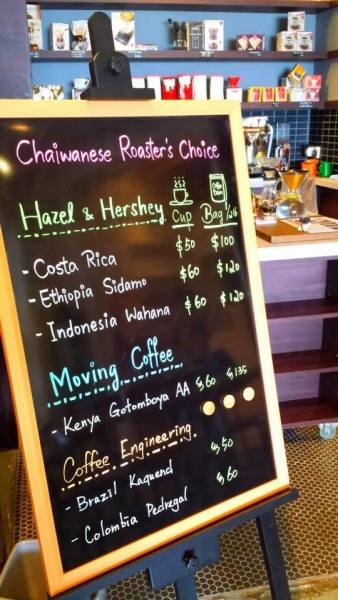 Chaiwanese Roaster's Choice
Hazel & Hershey Cup Bag
- Costa Rica $50 $100
- Ethiopia Sidamo $60 $120
- Indonesia Wahana $60 $120
Moving Coffee
- Kenya Gotomboya AA $60 $135
Coffee Engineering
- Brazil Kaquend $50
- Colombia Pedregal $60